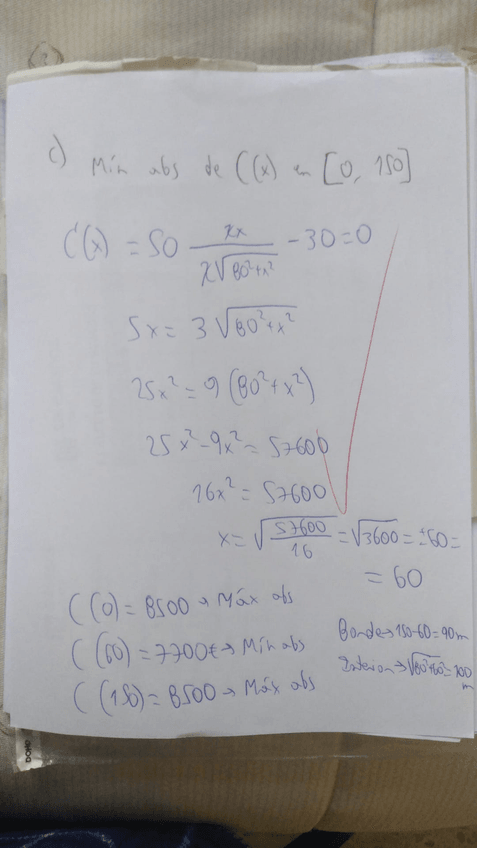 c) Mín abs de C(x) en [0, 150]
C'(x) = 50 2x / 2√(80²+x²) - 30 = 0
5x = 3√(80²+x²)
25x² = 9(80²+x²)
25x² - 9x² = 57600
16x² = 57600
x = √(57600/16) = √3600 = ±60 =
= 60
C(0) = 8500 → Máx abs
C(60) = 7700€ → Mín abs
C(150) = 8500 → Máx abs
Borde → 150-60 = 90m
Interior → √(80²+60²) = 100
m